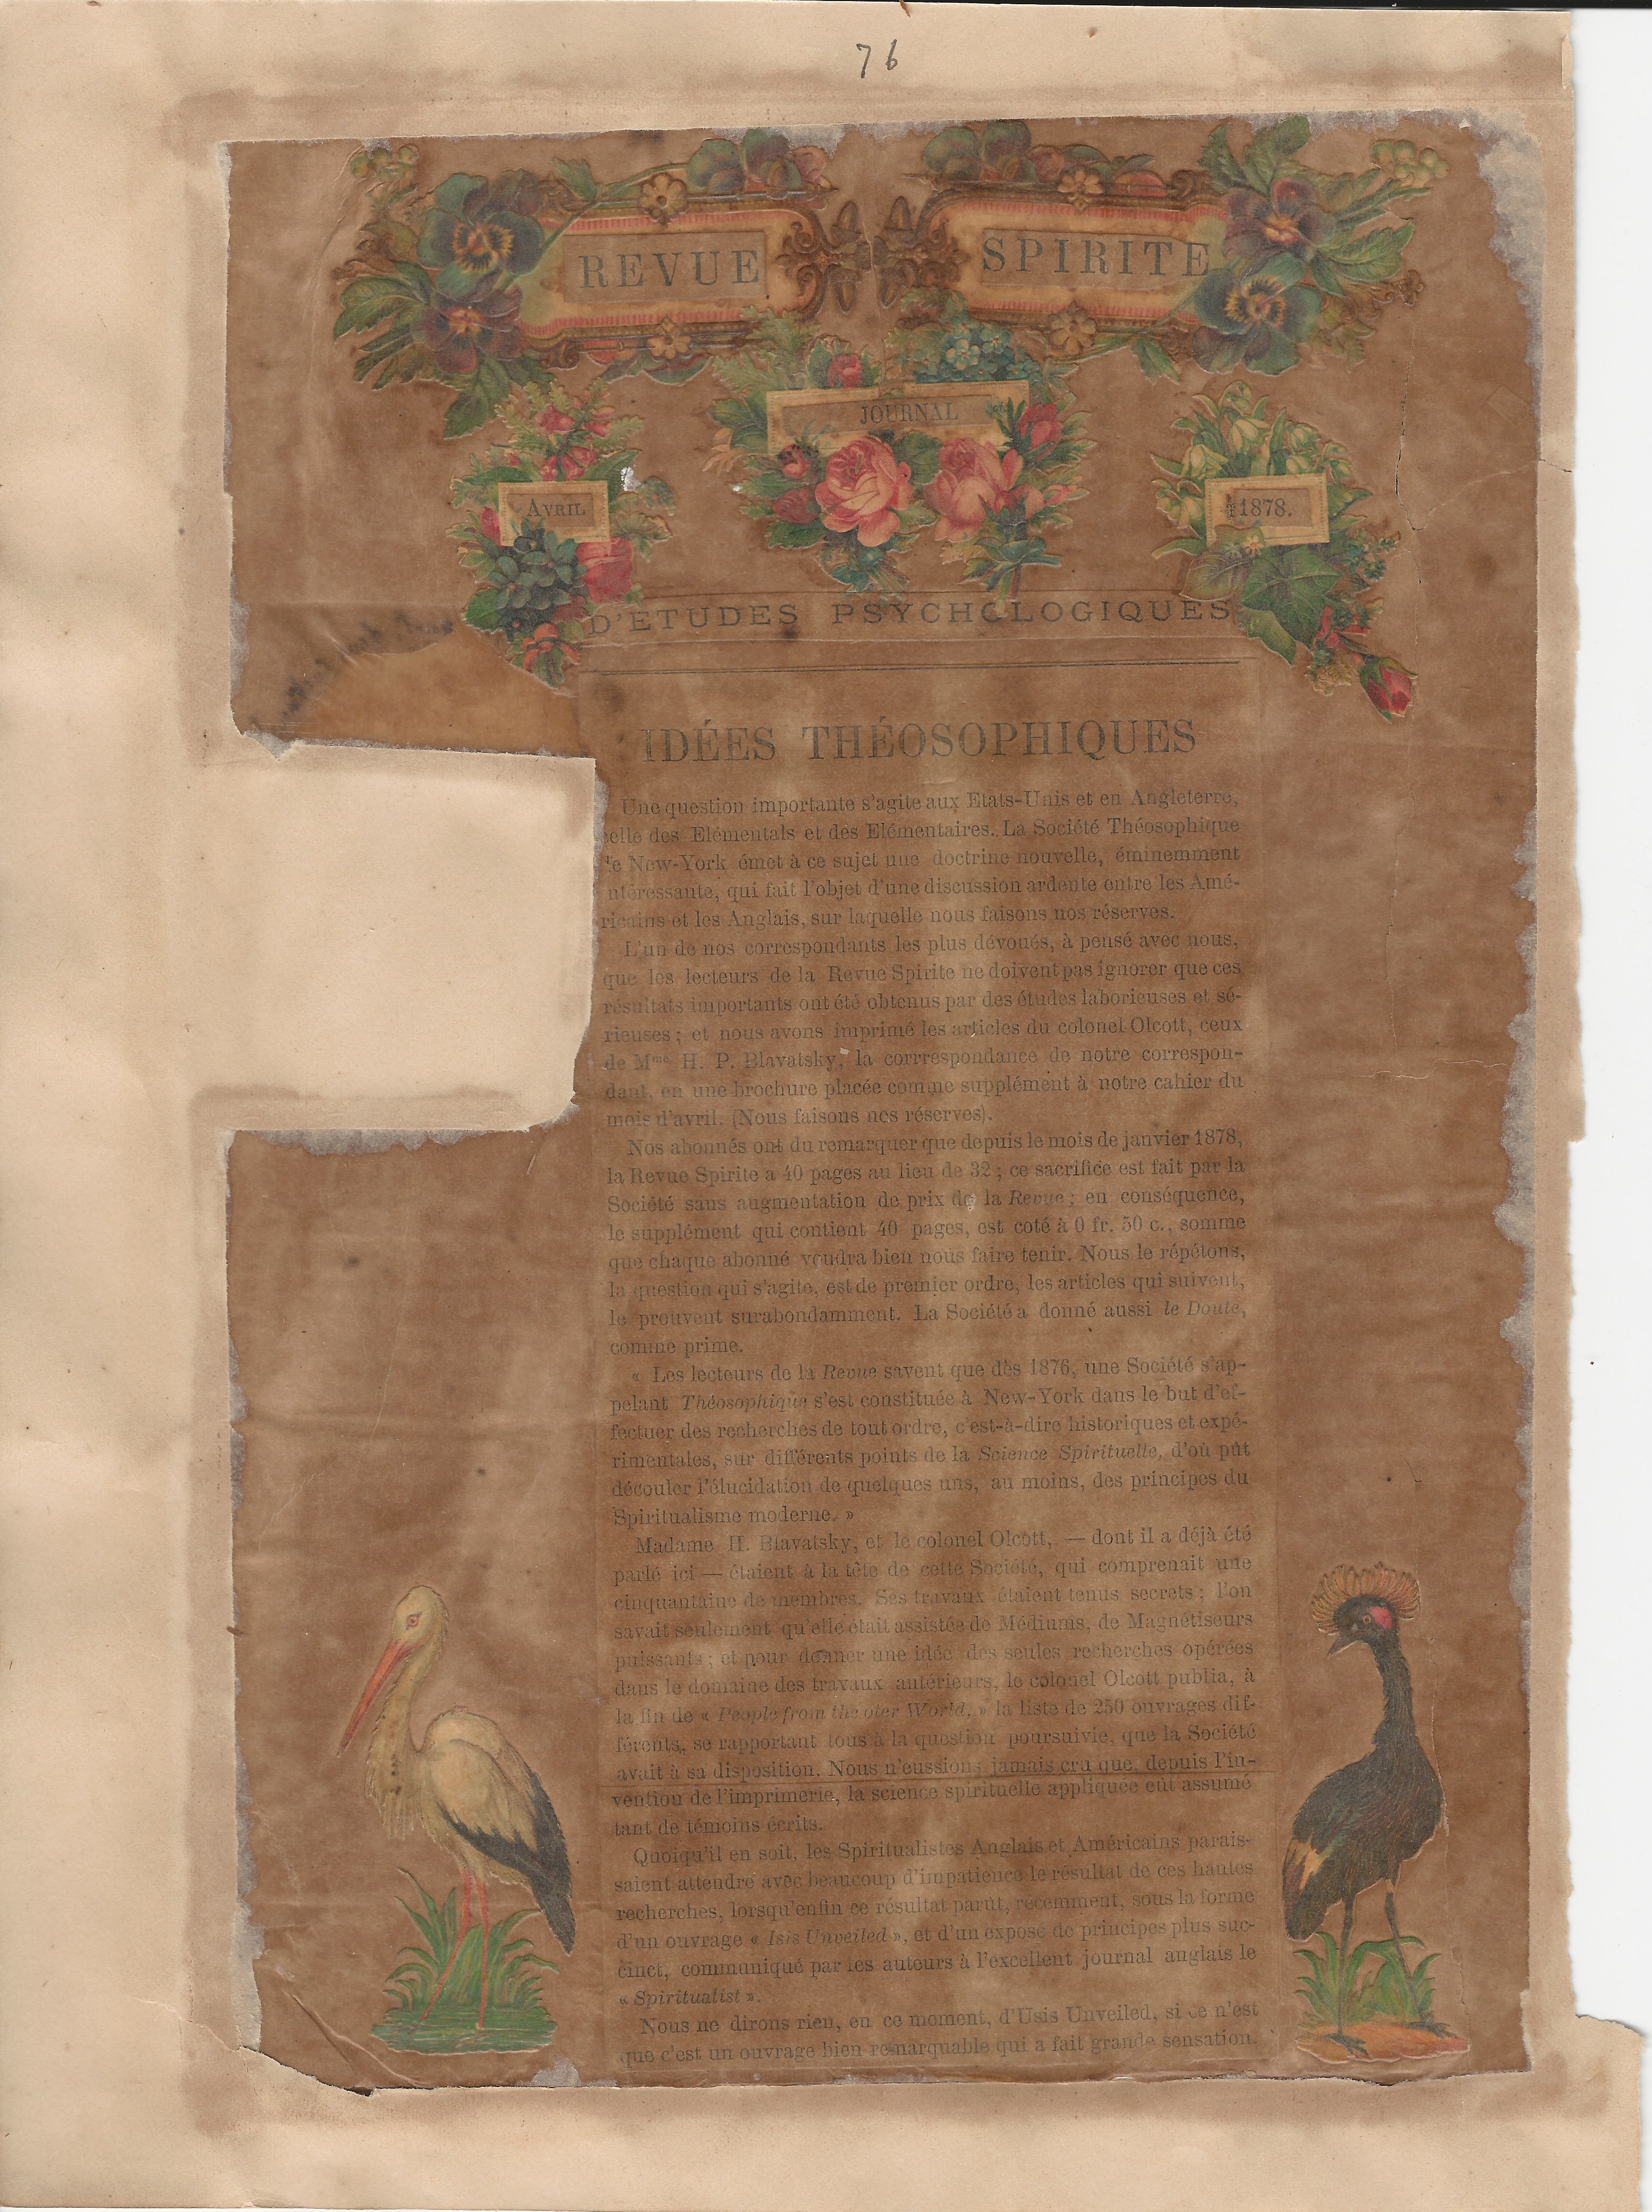 76
REVUE SPIRITE
JOURNAL
AVRIL
1878.
D'ETUDES PSYCHOLOGIQUES
IDÉES THÉOSOPHIQUES
Une question importante s'agite aux Etats-Unis et en Angleterre,
celle des Elémentals et des Elémentaires. La Société Théosophique
de New-York émet à ce sujet une doctrine nouvelle, éminemment
ntéressante, qui fait l'objet d'une discussion ardente entre les Amé-
ricains et les Anglais, sur laquelle nous faisons nos réserves.
L'un de nos correspondants les plus dévoués, à pensé avec nous,
que les lecteurs de la Revue Spirite ne doivent pas ignorer que ces
résultats importants ont été obtenus par des études laborieuses et sé-
rieuses ; et nous avons imprimé les articles du colonel Olcott, ceux
de Mme H. P. Blavatsky, la corrrespondance de notre correspon-
dant, en une brochure placée comme supplément à notre cahier du
mois d'avril. (Nous faisons nos réserves).
Nos abonnés ont du remarquer que depuis le mois de janvier 1878,
la Revue Spirite a 40 pages au lieu de 32 ; ce sacrifice est fait par la
Société sans augmentation de prix de la Revue ; en conséquence,
le supplément qui contient 40 pages, est coté à 0 fr. 50 c., somme
que chaque abonné voudra bien nous faire tenir. Nous le répétons,
la question qui s'agite, est de premier ordre, les articles qui suivent,
le prouvent surabondamment. La Société a donné aussi le Doute,
comme prime.
« Les lecteurs de la Revue savent que dès 1876, une Société s'ap-
pelant Théosophique s'est constituée à New-York dans le but d'ef-
fectuer des recherches de tout ordre, c'est-à-dire historiques et expé-
rimentales, sur différents points de la Science Spirituelle, d'où pût
découler l'élucidation de quelques uns, au moins, des principes du
Spiritualisme moderne. »
Madame H. Blavatsky, et le colonel Olcott, — dont il a déjà été
parlé ici — étaient à la tête de cette Société, qui comprenait une
cinquantaine de membres. Ses travaux étaient tenus secrets ; l'on
savait seulement qu'elle était assistée de Médiums, de Magnétiseurs
puissants ; et pour donner une idée des seules recherches opérées
dans le domaine des travaux antérieurs, le colonel Olcott publia, à
la fin de « People from the oter World, » la liste de 250 ouvrages dif-
férents, se rapportant tous à la question poursuivie, que la Société
avait à sa disposition. Nous n'eussions jamais cru que, depuis l'in-
vention de l'imprimerie, la science spirituelle appliquée eût assumé
tant de témoins écrits.
Quoiqu'il en soit, les Spiritualistes Anglais et Américains parais-
saient attendre avec beaucoup d'impatience le résultat de ces hautes
recherches, lorsqu'enfin ce résultat parût, récemment, sous la forme
d'un ouvrage « Isis Unveiled », et d'un exposé de principes plus suc-
cinct, communiqué par les auteurs à l'excellent journal anglais le
« Spiritualist ».
Nous ne dirons rien, en ce moment, d'Usis Unveiled, si ce n'est
que c'est un ouvrage bien remarquable qui a fait grande sensation.